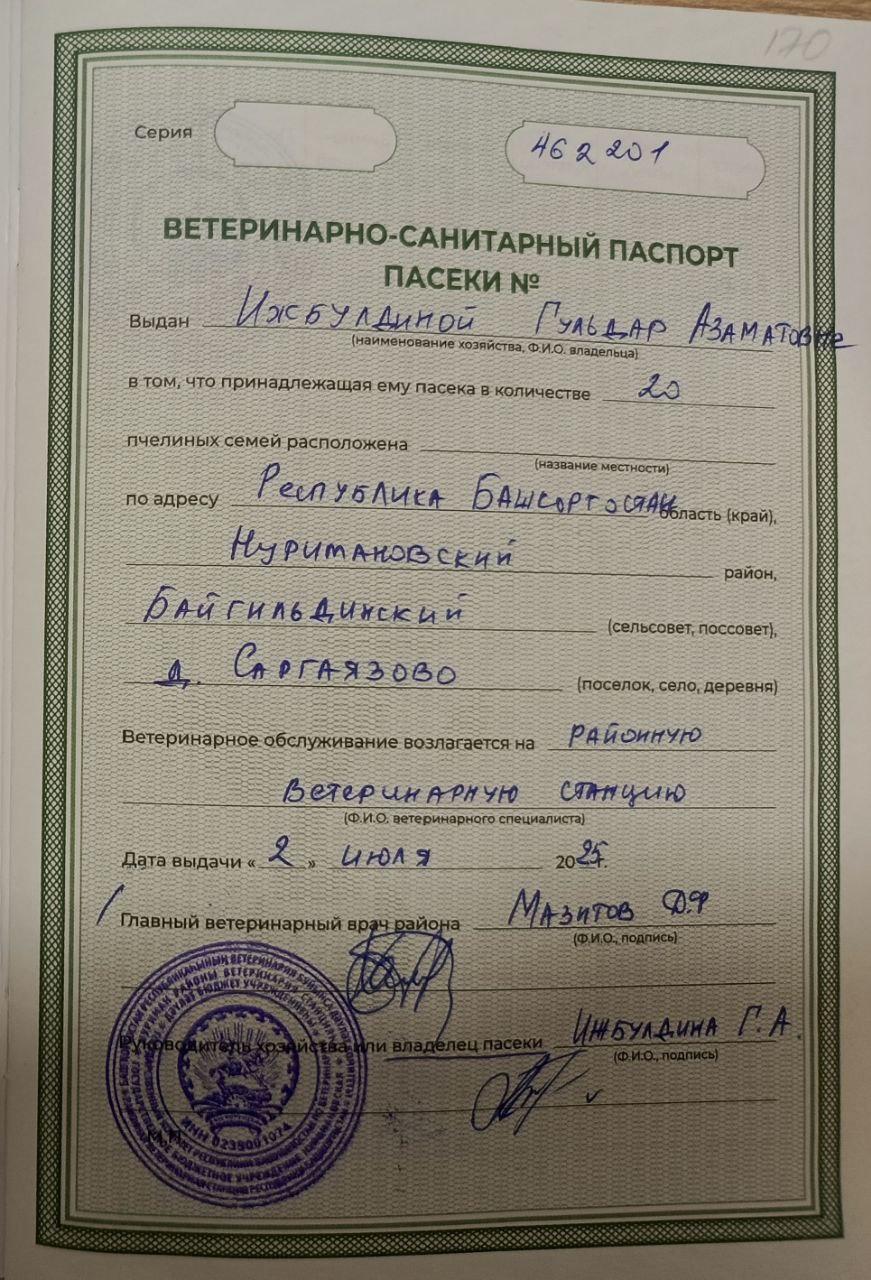 170
Серия 462201
ВЕТЕРИНАРНО-САНИТАРНЫЙ ПАСПОРТ
ПАСЕКИ №
Выдан Ижбулдиной Гульдар Азаматовне
(наименование хозяйства, Ф.И.О. владельца)
в том, что принадлежащая ему пасека в количестве 20
пчелиных семей расположена
(название местности)
по адресу Республика Башкортостан область (край),
Нуримановский район,
Байгильдинский (сельсовет, поссовет),
д. Саргаязово (поселок, село, деревня)
Ветеринарное обслуживание возлагается на районную
ветеринарную станцию
(Ф.И.О. ветеринарного специалиста)
Дата выдачи « 2 » июля 2025г.
/ Главный ветеринарный врач района Мазитов Д.Ф
(Ф.И.О., подпись)
Руководитель хозяйства или владелец пасеки Ижбулдина Г.А.
(Ф.И.О., подпись)
М.П.
ИНН 0235001074